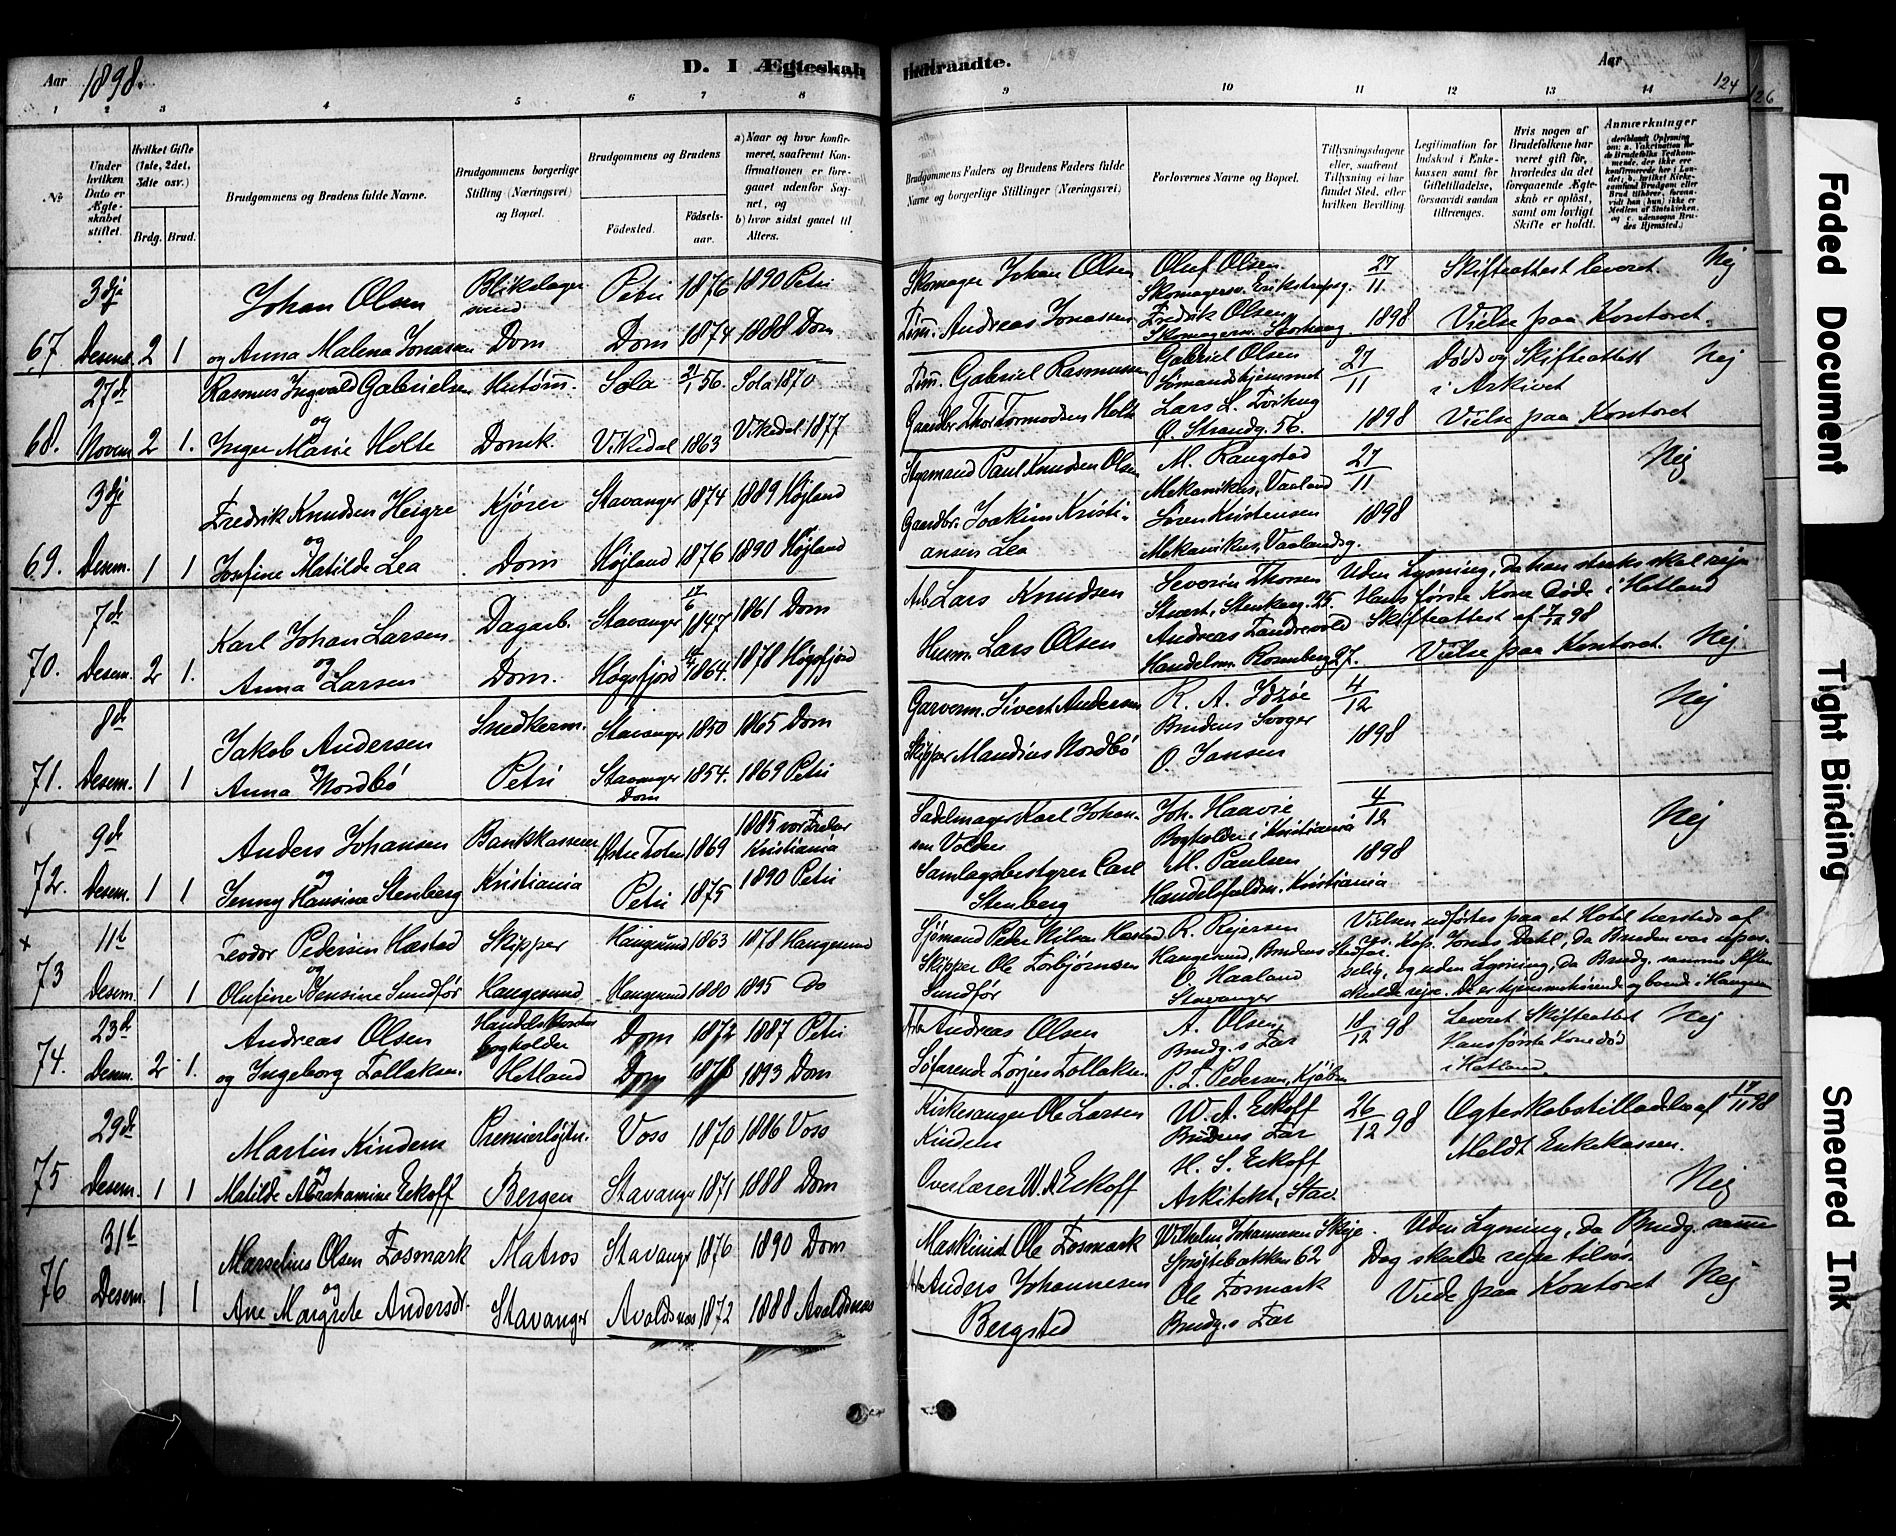 Aar 1898.
D. I Ægteskab Indtraadte.
Aar
124
126
1 2 3 4 5 6 7 8 9 10 11 12 13 14
No
Under hvilken Dato er Ægteskabet stiftet.
Hvilket Gifte (1ste, 2det, 3dte osv.)
Brdg. Brud.
Brudgommens og Brudens fulde Navne.
Brudgommens borgerlige Stilling (Næringsvei) og Bopæl.
Brudgommens og Brudens
Fødested.
Fødselsaar.
a) Naar og hvor konfirmeret, saafremt Konfirmationen er foregaaet udenfor Sognet, og
b) hvor sidst gaaet til Alters.
Brudgommens Faders og Brudens Faders fulde Navne og borgerlige Stillinger (Næringsvei)
Forlovernes Navne og Bopæl.
Tillysningsdagene eller, saafremt Tillysning ei har fundet Sted, efter hvilken Bevilling.
Legitimation for Indskud i Enkekassen samt for Giftetilladelse, forsaavidt saadan tiltrænges.
Hvis nogen af Brudefolkene har været gift før, hvorledes da det foregaaende Ægteskab er opløst, samt om lovligt Skifte er holdt.
Anmærkninger
3dje Johan Olsen Blikslager svend Petri 1876 1890 Petri Skomager Johan Olsen Oluf Olsen Skomagersv. Erikstrupsg. 27/11 Skifteattest leveret. Nej
67 Desemb. 2 1 og Anna Malena Jonassen Dom Dom 1874 1888 Dom Tøm. Andreas Jonassen Fredrik Olsen 1898 Vielse paa Kontoret.
27de Rasmus Ingvald Gabrielsen Hustøm. Sola 21/1 56. Sola 1870 Tøm. Gabriel Rasmussen Gabriel Olsen Sømandshjemmet 27/11 Døds og Skifteattest i Arkivet Nej
68. Novem 2 1. og Inger Marie Holte Domk. Vikedal 1863 Vikedal 1877 Gaardbr. Thor Tormodsen Holte Lars L. Ø. Strandg. 56. 1898 Vielse paa Kontoret
3dje Fredrik Knudsen Heigre Kjører Stavanger 1874 1889 Højland Styrmand Paul Knudsen Olsen M. Rangstad Mekanikus, Vaaland 27/11 Nej
69. Desem. 1 1 og Josefine Matilde Lea Dom Højland 1876 1890 Højland Gaardbr. Joakim Kristiansen Lea Søren Kristensen Mekanikus, Vaalandsg. 1898
7de Karl Johan Larsen Dagarb. Stavanger 17/6 1847 1861 Dom Arb Lars Knudsen Severin Thorsen Stuert, Stenkarg. 25. Uden Lysning, da han straks skal rejse Hans første Kone døde i Hetland
70. Desem. 2 1. og Anna Larsen Dom. Høgsfjord 1864. 1878 Høgsfjord Husm. Lars Olsen Andreas Tandrevold Handelsm. Rosenberg 27. Skifteattest af 7/12 98 Vielse paa Kontoret. Nej
8de Jakob Andersen Snedkerm. Stavanger 1850 1865 Dom Garverm. Sivert Andersen R. A. Idzøe Brudens Svoger 4/12 Nej
71. Desem. 1 1 og Anna Nordbö Petri Stavanger Dom 1854. 1869 Petri Skipper Mandius Nordbö O. Jansen 1898
9de Anders Johansen Bankkasserer Østre Toten 1869 1885 vor Frelser Kristiania Sadelmager Karl Johansen Volden Joh. Haavie Bogholder i Kristiania 4/12 Nej
72. Desem. 1 1 og Jenny Hansine Stenberg Kristiania Petri 1875 1890 Petri Samlagsbestyrer Carl Stenberg M. Paulsen Handelsfuldm., Kristiania 1898
x 11te Teodor Pedersen Hæstad Skipper Haugesund 1863 1878 Haugesund Sjømand Peder Nilsen Hæstad R. Rejersen Haugesund, Brudens Stedfar. Vielsen udførtes paa et Hotel hersteds af res. Kap. Jonas Dahl, da Bruden var upas-
73 Desem. 1 1 og Olufine Bensine Sundfør Haugesund Haugesund 1880 1895 Do Skipper Ole Torbjørnsen Sundfør O. Haaland Stavanger selig, og uden Lysning, da Brudg. samme Aften skulde rejse. De er hjemmehørende og boende i Haugesun
23de Andreas Olsen Handelsbogholder Dom 1872 1887 Petri Arb Andreas Olsen A. Olsen, Brudg.s Far 18/12 98 Leveret Skifteattest Nej
74. Desem. 2 1. og Ingeborg Tollaksen. Hetland Dom 1878 1893 Dom Søfarende Torjus Tollaksen P. T. Pedersen, Kjøbm Hans første Kone død i Hetland.
29de Martin Kindem Premierløjtn. Voss 1870 1886 Voss Kirkesanger Ole Larsen Kindem W. A. Eckoff Brudens Far 26/12 98 Ægteskabstilladelse af 17/11 98 Meldt Enkekassen.
75 Desem. 1 1 og Matilde Abrahamine Eckoff Bergen Stavanger 1871 1888 Dom Overlærer W. A. Eckoff H. S. Eckoff Arkitekt, Stav. Nej
31te Marselius Olsen Fosmark Matros Stavanger 1876 1890 Dom Maskinist Ole Fosmark Wilhelm Johannesen Skeje Sprøjtebakken 62 Uden Lysning, da Brudg. samme Dag skulde rejse tilsøs.
76 Desem 1 1 og Ane Margrete Andersdr. Stavanger Avaldsnes 1872 1888 Avaldsnes Arb Anders Johannesen Bergsted Ole Fosmark Brudg.s Far Viede paa Kontoret Nej
Faded Document
Tight Binding
Smeared Ink